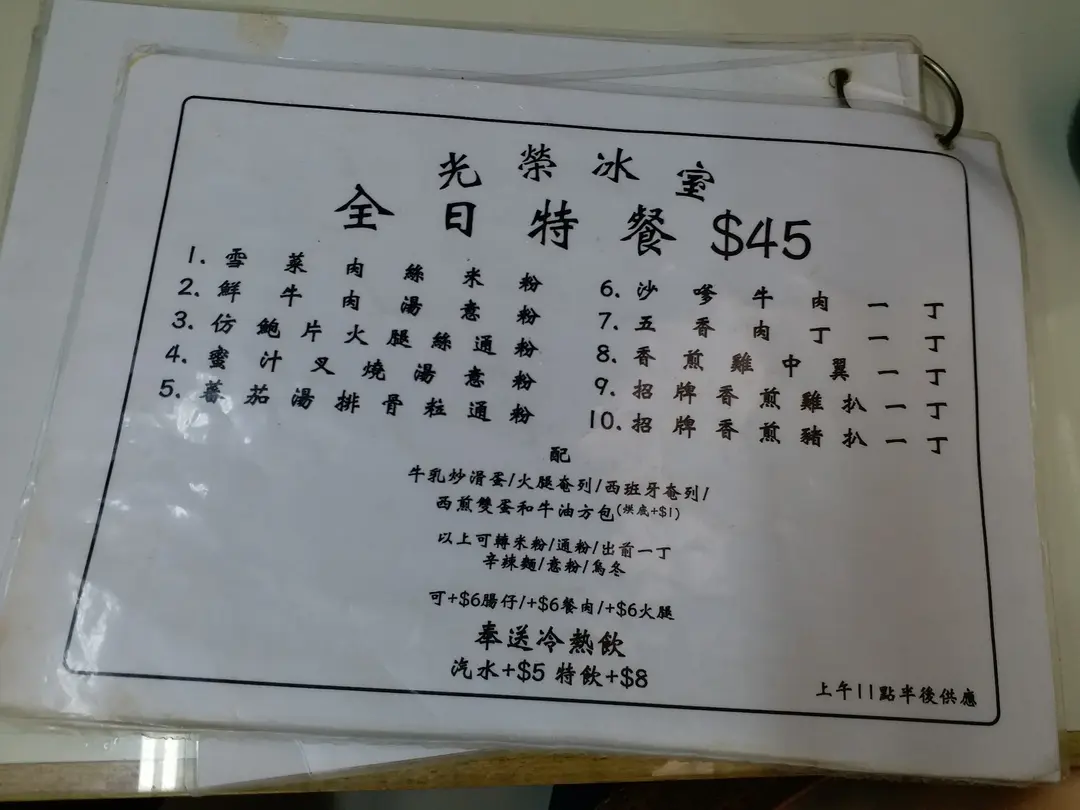 光榮冰室
全日特餐 $45
1. 雪菜肉絲米粉
2. 鮮牛肉湯意粉
3. 仿鮑片火腿絲通粉
4. 蜜汁叉燒湯意粉
5. 蕃茄湯排骨粒通粉
6. 沙嗲牛肉一丁
7. 五香肉丁一丁
8. 香煎雞中翼一丁
9. 招牌香煎雞扒一丁
10. 招牌香煎豬扒一丁
配
牛乳炒滑蛋/火腿奄列/西班牙奄列/
西煎雙蛋和牛油方包(烘底+$1)
以上可轉米粉/通粉/出前一丁
辛辣麵/意粉/烏冬
可+$6腸仔/+$6餐肉/+$6火腿
奉送冷熱飲
汽水+$5 特飲+$8
上午11點半後供應